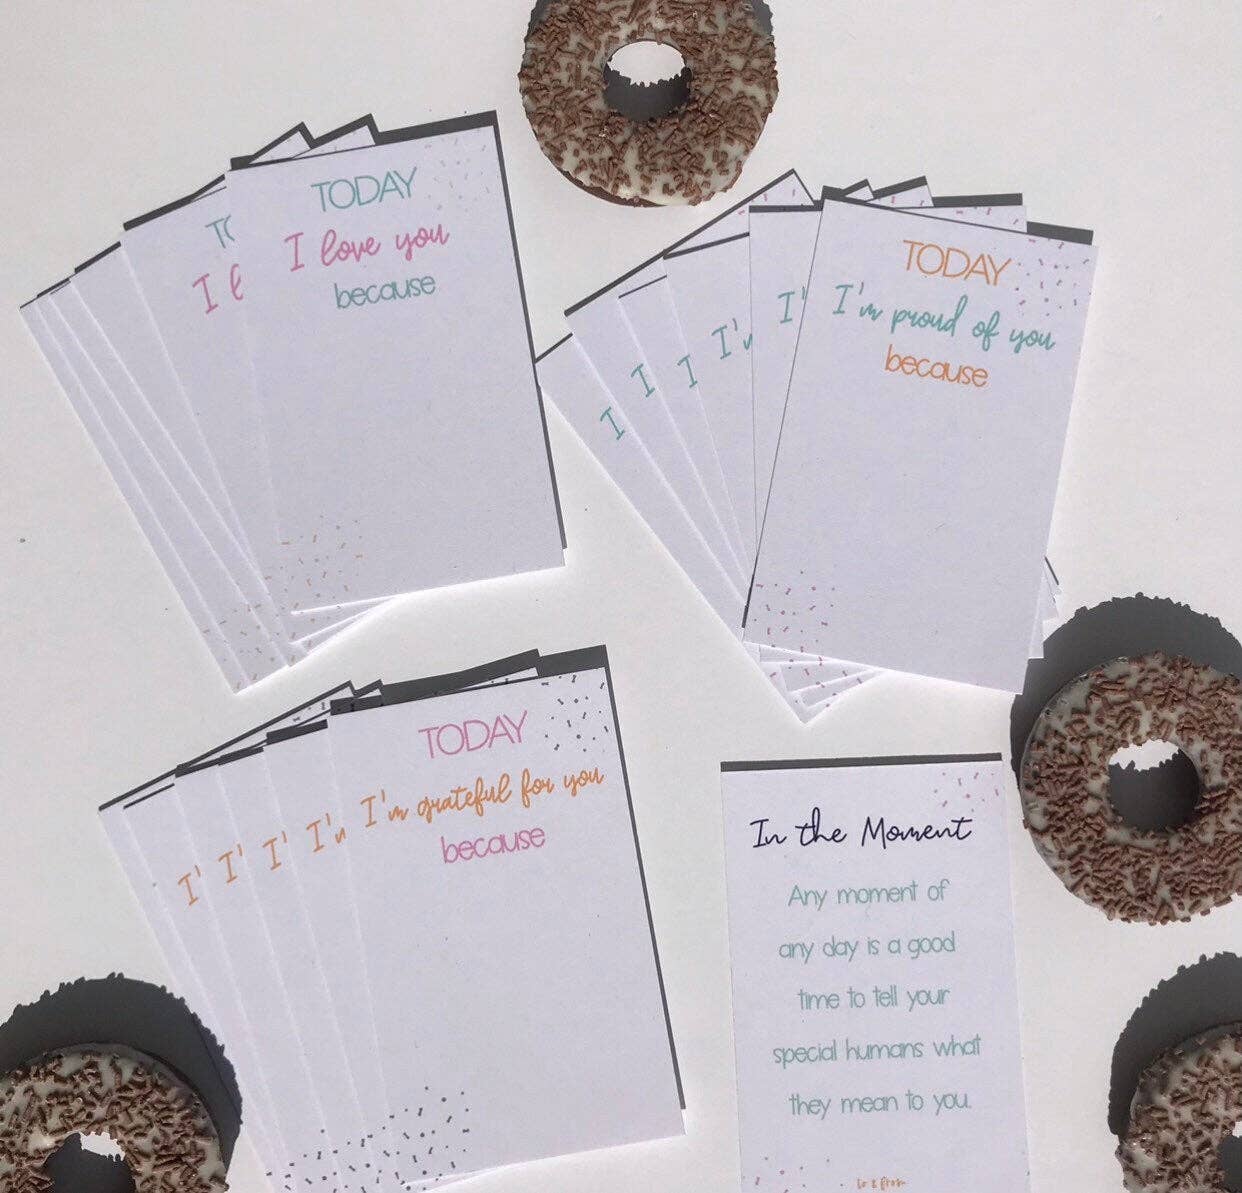 TODAY
I love you
because
TO
I l
TODAY
I'm proud of you
because
I'
I'
I
I
I
TODAY
I'm grateful for you
because
I'
I'
I'
I'
In the Moment
Any moment of
any day is a good
time to tell your
special humans what
they mean to you.
to & from